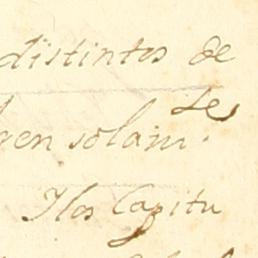 distintos de
gen solam.te
Y los Capitu